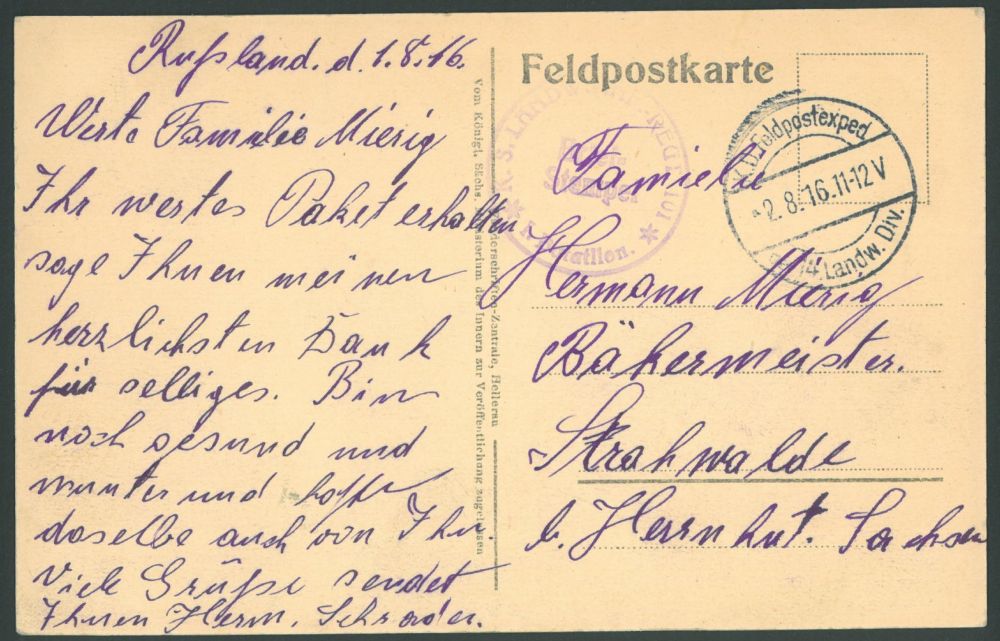 Rußland. d. 1.8.16.
Werte Familie Mierig
Ihr wertes Paket erhalten
sage Ihnen meinen
herzlichsten Dank
für selliges. Bin
noch gesund und
munter und hoffe
daselbe auch von Ihn.
Viele Grüße sendet
Ihnen Herm. Schrader.
Vom Königl. Sächs. Ministerium des Innern zur Veröffentlichung zugelassen
Zentrale, Hellerau
Feldpostkarte
K.D. Feldpostexped.
2.8.16.11-12V
14 Landw. Div.
K. S.
Stempel
Bataillon.
Familie
Hermann Mierig
Bäkermeister.
Strahwalde
b. Herrnhut. Sachsen